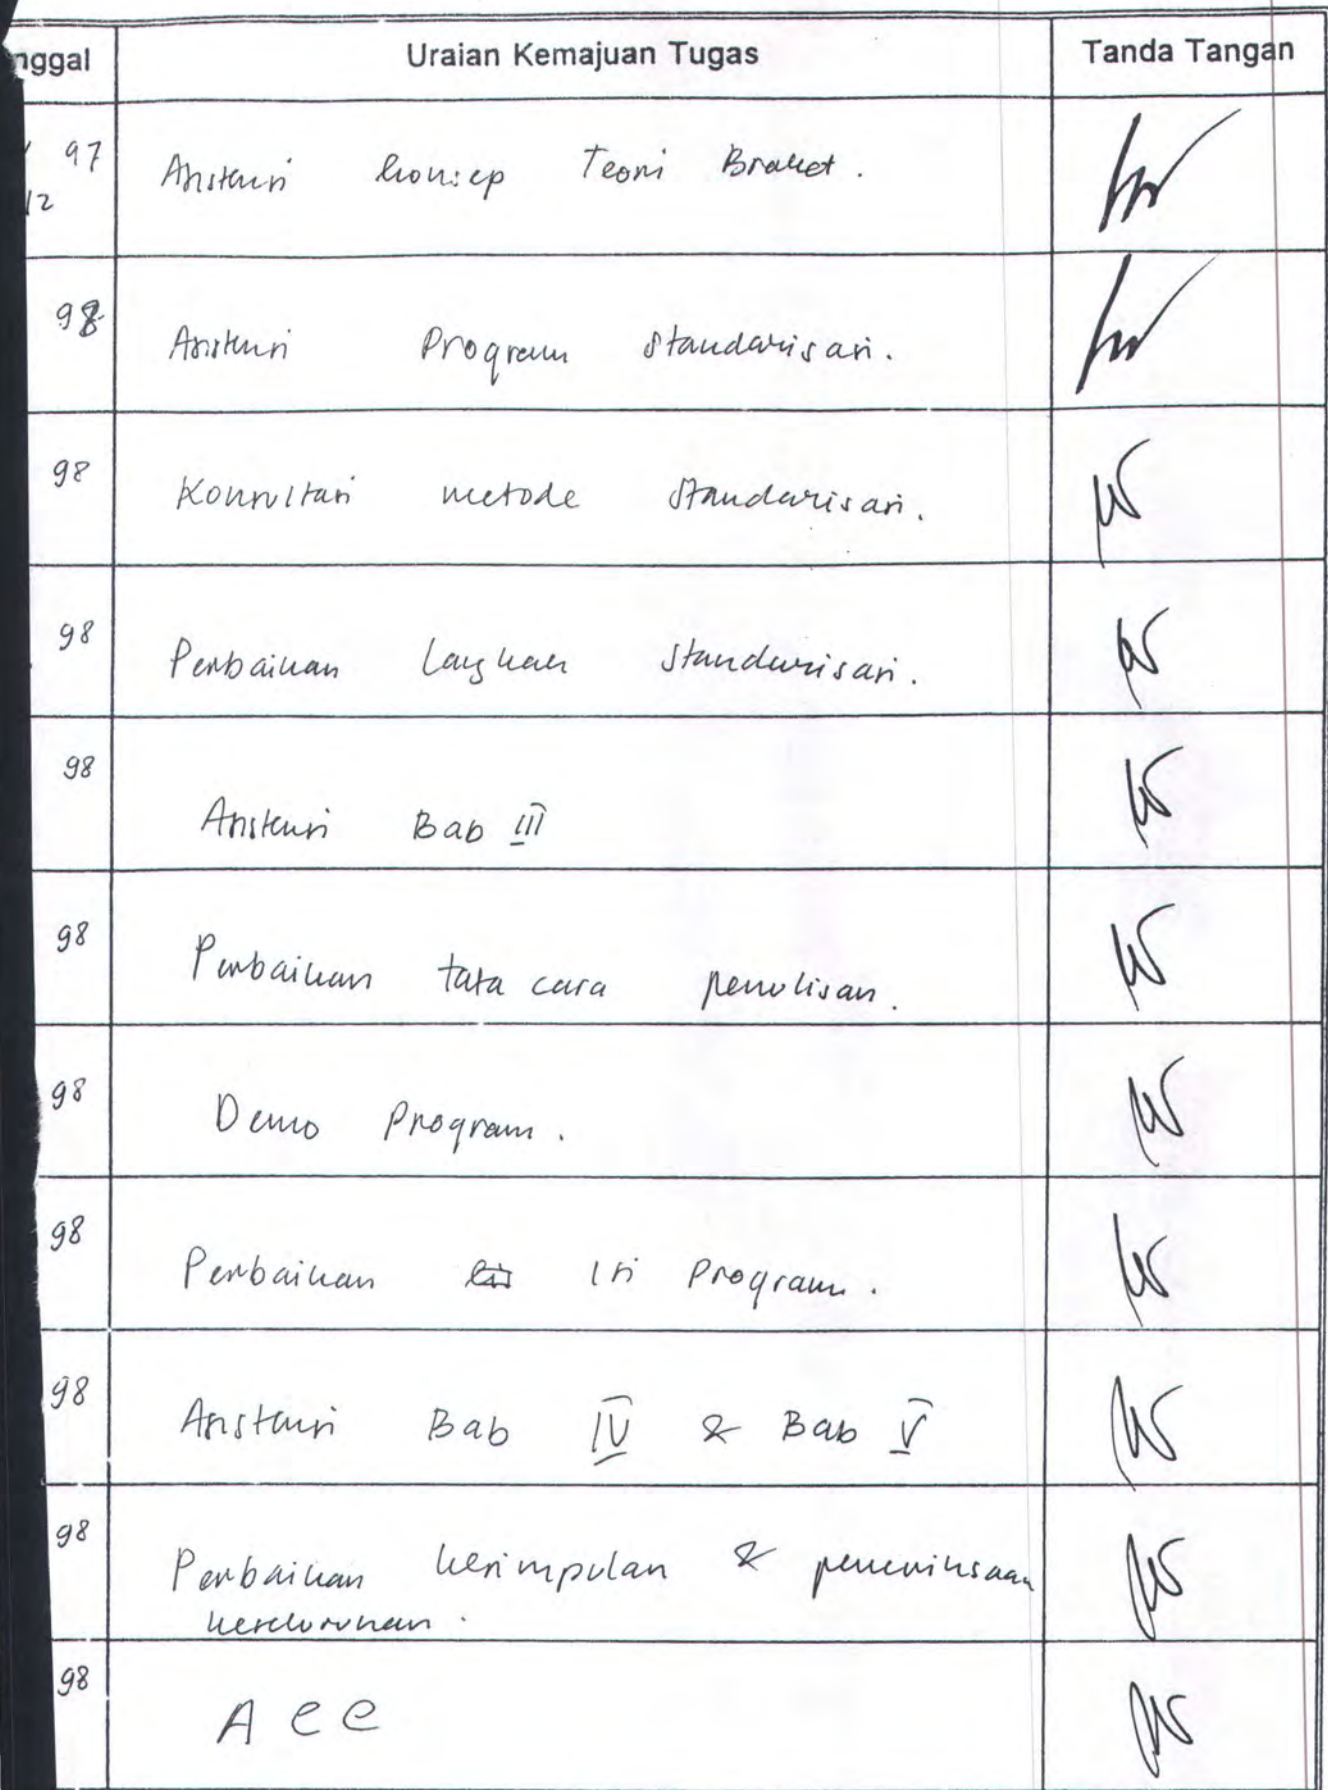 nggal Uraian Kemajuan Tugas Tanda Tangan
97 Asistensi konsep Teori Braket.
12
98 Asistensi Program standarisasi.
98 Konsultasi metode standarisasi.
98 Perbaikan langkah standarisasi.
98 Asistensi Bab III
98 Perbaikan tata cara penulisan.
98 Demo Program.
98 Perbaikan Isi Program.
98 Asistensi Bab IV & Bab V
98 Perbaikan kesimpulan & pemeriksaan
keseluruhan.
98 Acc